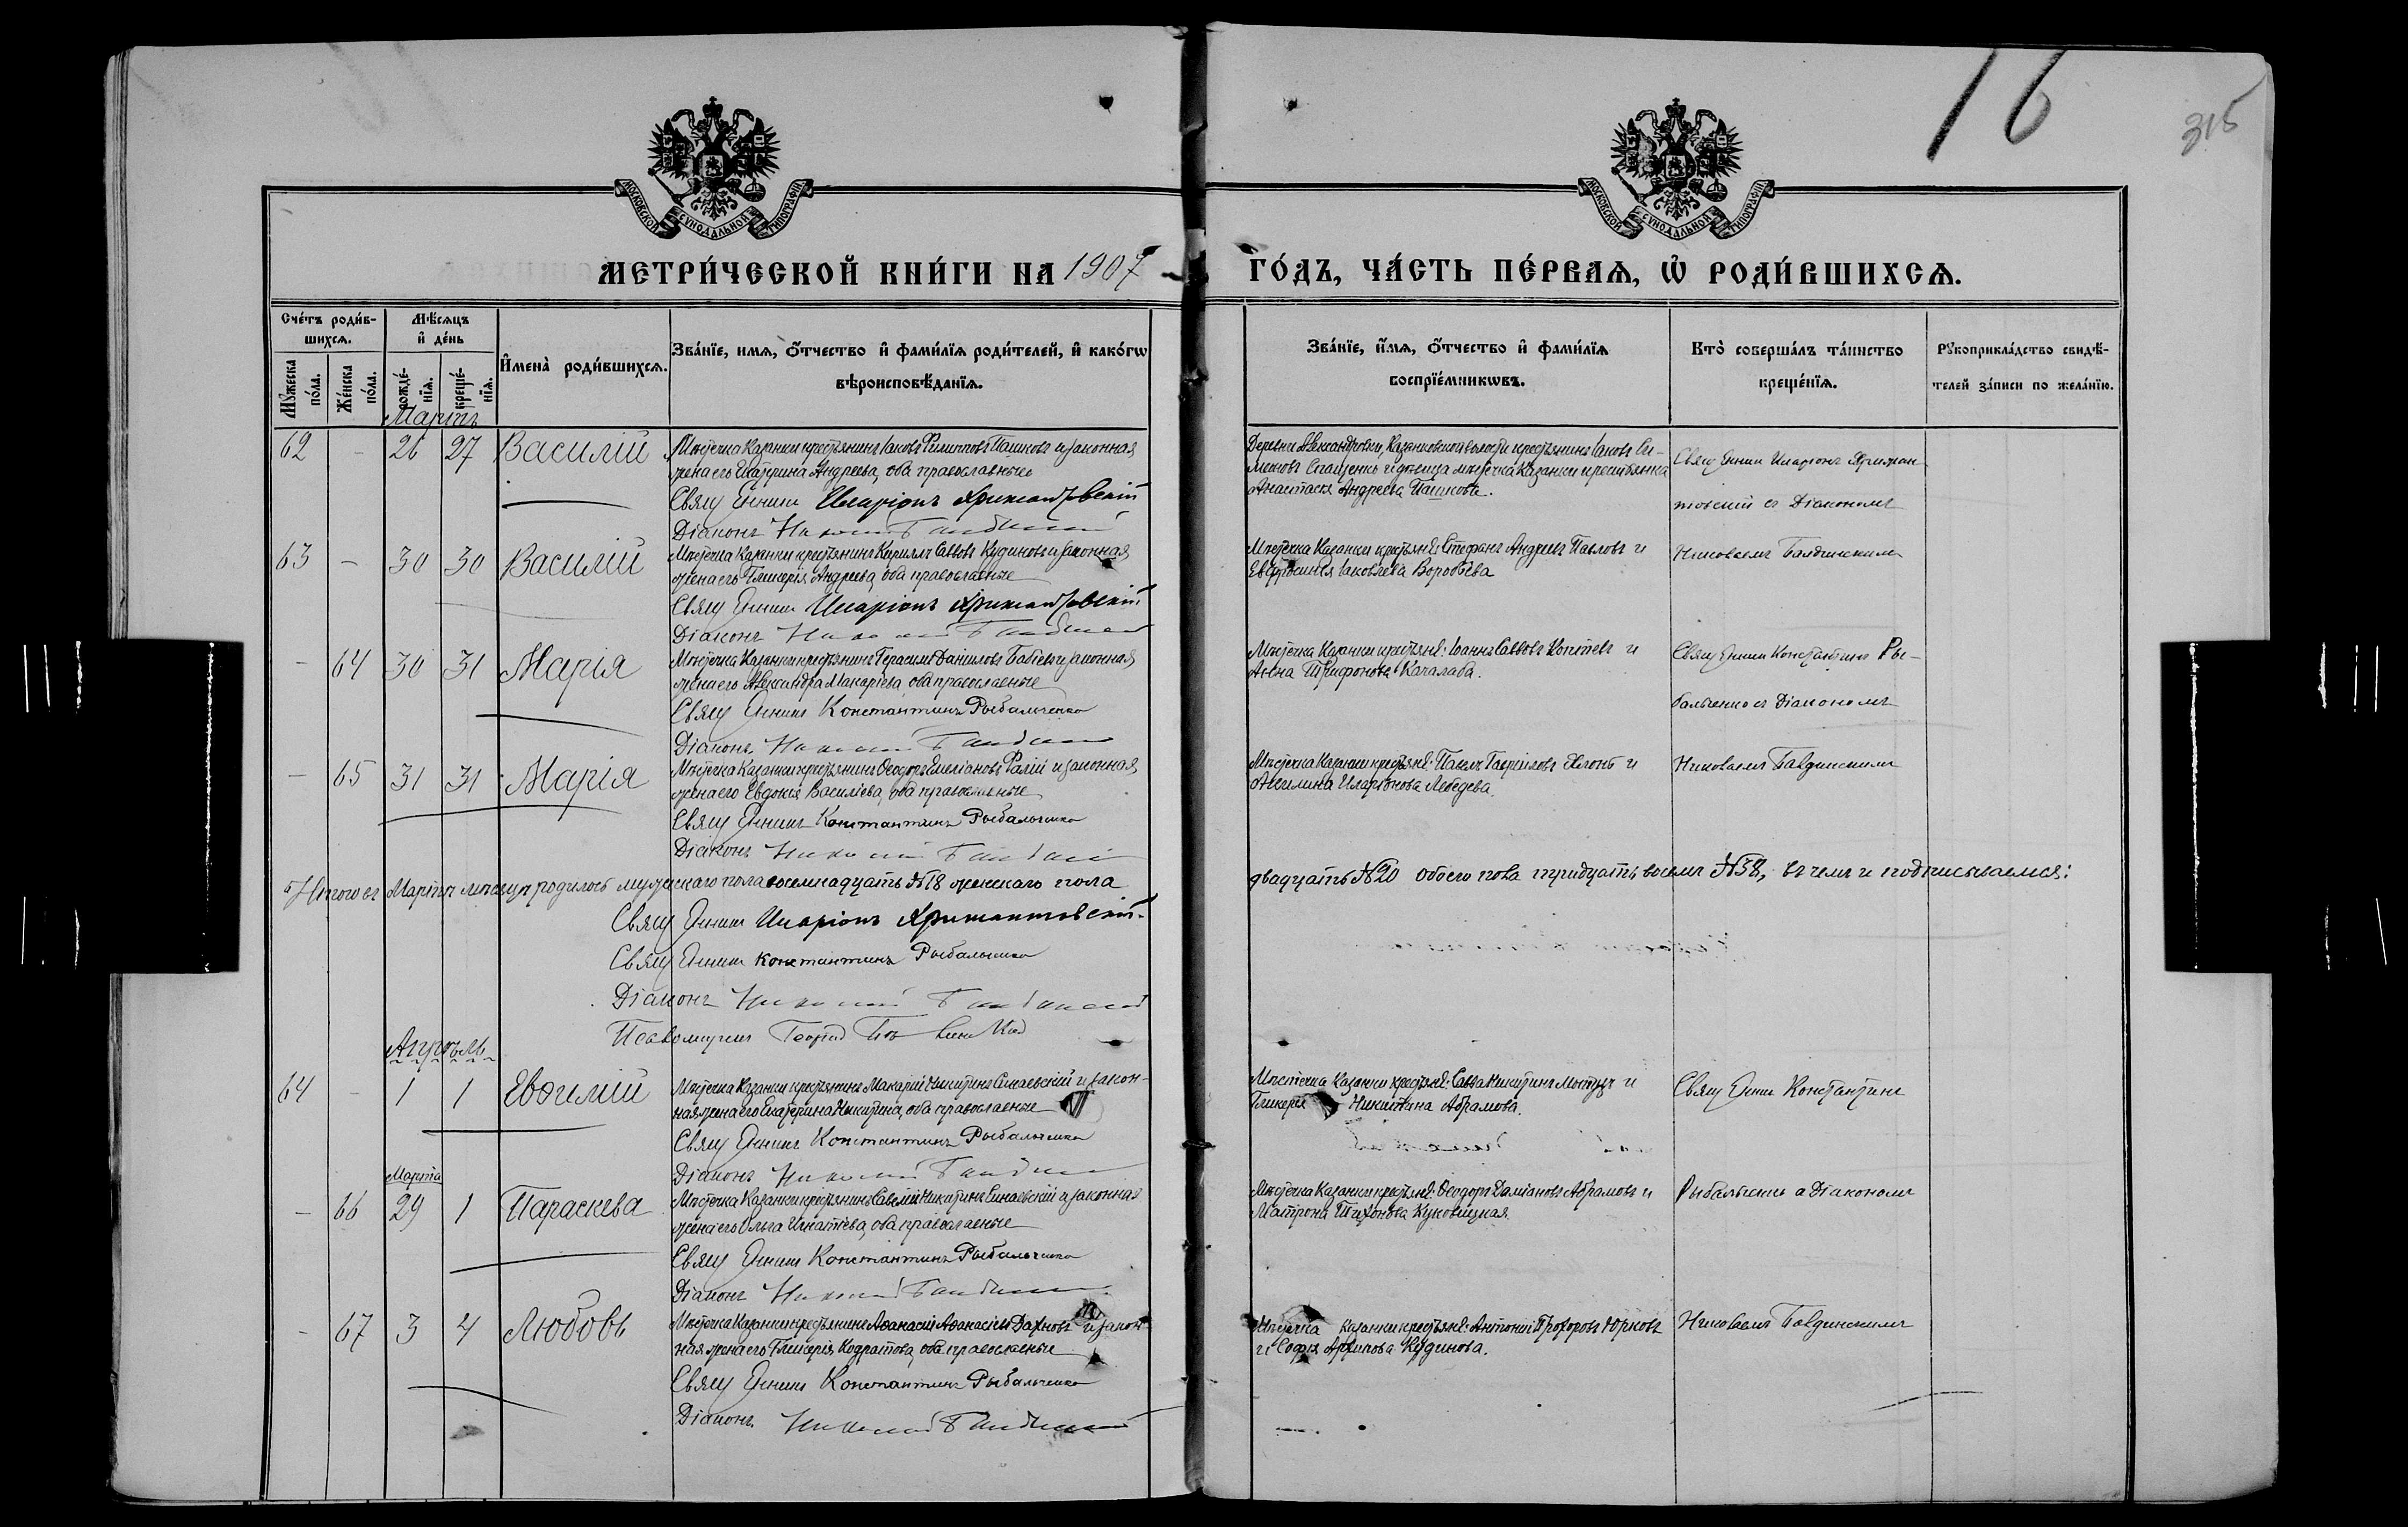 16
315
МОСКОВСКОЙ СѴНОДАЛЬНОЙ ТИПОГРАФІИ
МОСКОВСКОЙ СѴНОДАЛЬНОЙ ТИПОГРАФІИ
МЕТРИ́ЧЕСКОЙ КНИ́ГИ НА 1907 ГО́ДЪ, ЧА́СТЬ ПЕ́РВАѦ, Ѽ РОДИ́ВШИХСѦ.
Сче́тъ роди́в-
шихсѧ.
Мꙋ́жеска по́ла.
Же́нска по́ла.
Мѣ́сѧцъ
и҆ де́нь
рожде́-
нїѧ.
креще́-
нїѧ.
И҆мена̀ роди́вшихсѧ.
Зва́нїе, имѧ, ѻ҆́тчество и҆ фами́лїѧ роди́телей, и҆ како́гѡ
вѣроисповѣ́данїѧ.
Зва́нїе, и҆́мѧ, ѻ҆́тчество и҆ фами́лїѧ
воспрїе́мникѡвъ.
Кто̀ соверша́лъ та́инство
креще́нїѧ.
Рꙋкоприкла́дство свидѣ́-
телей за́писи по жела́нїю.
Мартъ
62 - 26 27 Василій
Мѣстечка Казанки крестьянинъ Іаковъ Филипповъ Пашковъ и законная
жена его Екатерина Андреева, оба православные
Свящ Илларіонъ Хрисантовскій
Діаконъ Николай
Деревни Александровки, Казанковской волости крестьянинъ Іаковъ Си-
меоновъ и девица мѣстечка Казанки крестьянка
Анастасія Андреева Пашкова.
Свящ Иларіонъ Хрисан-
товскій съ Діакономъ
63 - 30 30 Василій
Мѣстечка Казанки крестьянинъ Кириллъ Саввовъ Кудиновъ и законная
жена его Гликерія Андреева, оба православные
Свящ Иларіонъ Хрисантовскій
Діаконъ Николай
Мѣстечка Казанки крестьяне: Стефанъ Андреевъ Павловъ и
Евфросинія Іаковлева Воробьева
Николаемъ
- 64 30 31 Марія
Мѣстечка Казанки крестьянинъ Герасимъ Даніиловъ и законная
жена его Александра Макаріева, оба православные
Свящ Константинъ Рыбальченко
Діаконъ Николай
Мѣстечка Казанки крестьяне: Іоаннъ Саввовъ и
Анна Трифонова
Свящ Константинъ Ры-
бальченко съ Діакономъ
- 65 31 31 Марія
Мѣстечка Казанки крестьянинъ Ѳеодоръ Емеліановъ и законная
жена его Евдокія Василіева, оба православные
Свящ Константинъ Рыбальченко
Діаконъ Николай
Мѣстечка Казанки крестьяне: Павелъ Гавріиловъ и
Акилина Иларіонова Лебедева.
Николаемъ
Итого въ Мартѣ мѣсяцѣ родилось мужескаго пола восемнадцать №18 женскаго пола двадцать №20 обоего пола тридцать восемь №38, въ чемъ и подписываемся:
Свящ Иларіонъ Хрисантовскій.
Свящ Константинъ Рыбальченко
Діаконъ Николай
Псаломщикъ Георгій
Апрѣль
64 - 1 1 Евѳимій
Мѣстечка Казанки крестьянинъ Макарій Никитинъ Синаевскій и закон-
ная жена его Екатерина Никитина, оба православные
Свящ Константинъ Рыбальченко
Діаконъ Николай
Мѣстечка Казанки крестьяне: Савва Никитинъ и
Гликерія Никитина Абрамова.
Свящ Константинъ
Марта
- 66 29 1 Параскева
Мѣстечка Казанки крестьянинъ Савелій Никитинъ Синаевскій и законная
жена его Ольга Игнатіева, оба православные
Свящ Константинъ Рыбальченко
Діаконъ Николай
Мѣстечка Казанки крестьяне: Ѳеодоръ Даміановъ Абрамовъ и
Матрона Тихонова
Рыбальченко съ Діакономъ
- 67 3 4 Любовь
Мѣстечка Казанки крестьянинъ Аѳанасій Аѳанасіевъ Дахновъ и закон-
ная жена его Гликерія Кодратова, оба православные
Свящ Константинъ Рыбальченко
Діаконъ Николай
Мѣстечка Казанки крестьяне: Антоній Прохоровъ Юрковъ
и Софія Архипова Кудинова.
Николаемъ